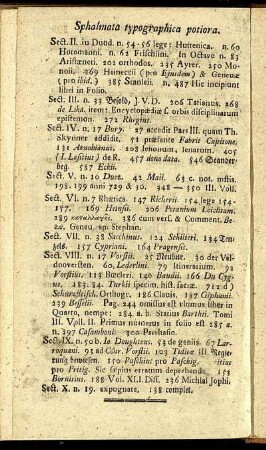 Sphalmata typographica potiora.
Sect. II. in Duod. n. 54-56 lege: Huttenica. n. 60
Hotomanni. n. 62 Frischlini. In Octavo n. 83
Aristæneti. 202 orthodox. 235 Ayrer. 250 Mo-
nolii. 269 Heineccii (pro Ejusdem) & Genevæ
(pro ibid.) 385 Stanleii. n. 487 Hic incipiunt
libri in Folio.
Sect. III. n. 33 Besold, J. V. D. 206 Tatianus. 268
de Lika. item: Encyclopædiæ f. orbis disciplinarum
epistemon. 272 Rhegini.
Sect. IV. n. 17 Bory. 27 accedit Pars III. quam Th.
Skynner addidit. 51 præfante Fabric Capitone.
131 Acrobianus. 202 Ienonum, lenarum. 405
(I. Lasitius) de R. 457 dena data. 546 Scander-
beg. 587 Eckii.
Sect. V. n. 10 Duet. 42 Maii. 63 c. not. mstis.
198. 199 anni 729 & 30. 348 — 350 III. Voll.
Sect. VI. n. 7 Rhætica. 147 Richerii. 154 lege 154-
157. 169 Hansiz. 206 Petentium Locidirum.
289 καταλλαγῆς. 386 cum vers. & Comment. Be-
zæ. Genev. ap. Stephan.
Sect. VII. n. 38 Surchinus. 124 Schilteri. 134 Tm-
gels. 157 Cypriani. 164 Pragensis.
Sect. VIII. n. 17 Vorstii. 25 Meubute. 30 der Vel-
dnoversten. 60 Lederlini. 79 Itinerarium. 92
Vorstius. 115 Bœcleri. 140 Baudii. 166 Du Cyg-
ne. 183. 84. Turkii specim. hist. sacræ. 712 d)
Schurzfleisch. Orthogr. 186 Clavis. 187 Giphanii.
239 Besselii. Pag. 224 omissus est vltimus liber in
Quarto, nempe: 284. a. b. Statius Barthii. Tomi
III. Vpll. II. Primus numerus in folio est 285 a.
n. 297 Casaubonus 300 Perrhasio.
Sect. IX. n. 50 b. Io Doughteus. 53 de geniis. 67 Lar-
roquani. 93 ad Cdor. Vorstii. 103 Tidiæ III Regie-
rung bewiesen. n. 150 Paschius pro Paschig.
pro Pritig. Sic sæpius erratum deprehend. 153
Bornitius. 188 Vol. XLI. Diss. 236 Michial Jophi.
Sect. X. n. 19. expugnate. 138 complet.